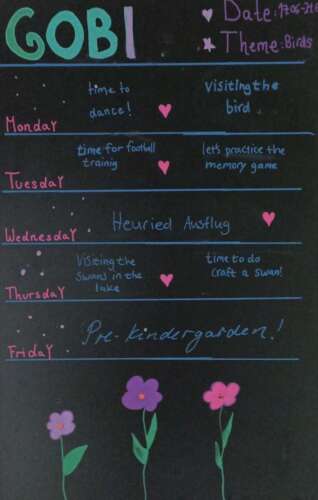 GOBI
Date: 17.06-21.6
Theme: Birds
time to
dance!
visiting the
bird
Monday
time for football
trainig
let's practice the
memory game
Tuesday
Heuried Ausflug
Wednesday
Visiting the
Swans in the
lake
time to do
craft a swan!
Thursday
Pre-kindergarden!
Friday